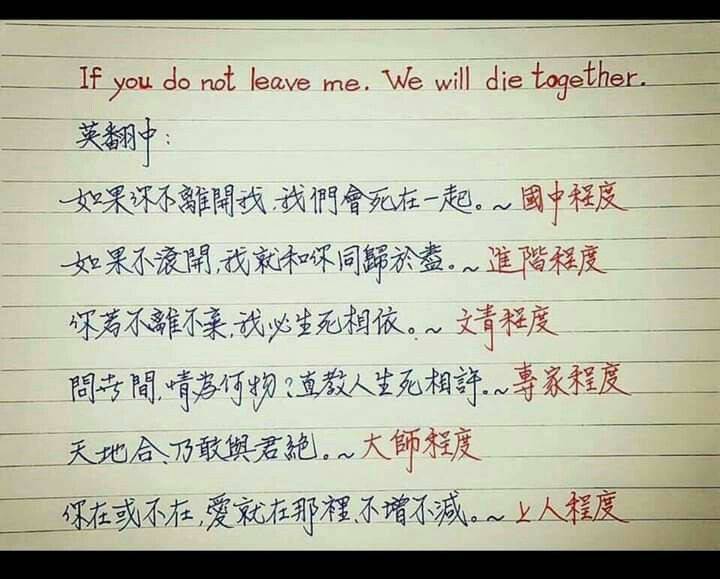 If you do not leave me. We will die together.
英翻中:
如果你不離開我,我們會死在一起。~國中程度
如果不滾開,我就和你同歸於盡。~進階程度
你若不離不棄,我必生死相依。~文青程度
問世間,情為何物?直教人生死相許。~專家程度
天地合、乃敢與君絕。~大師程度
你在或不在,愛就在那裡、不增不減。~上人程度